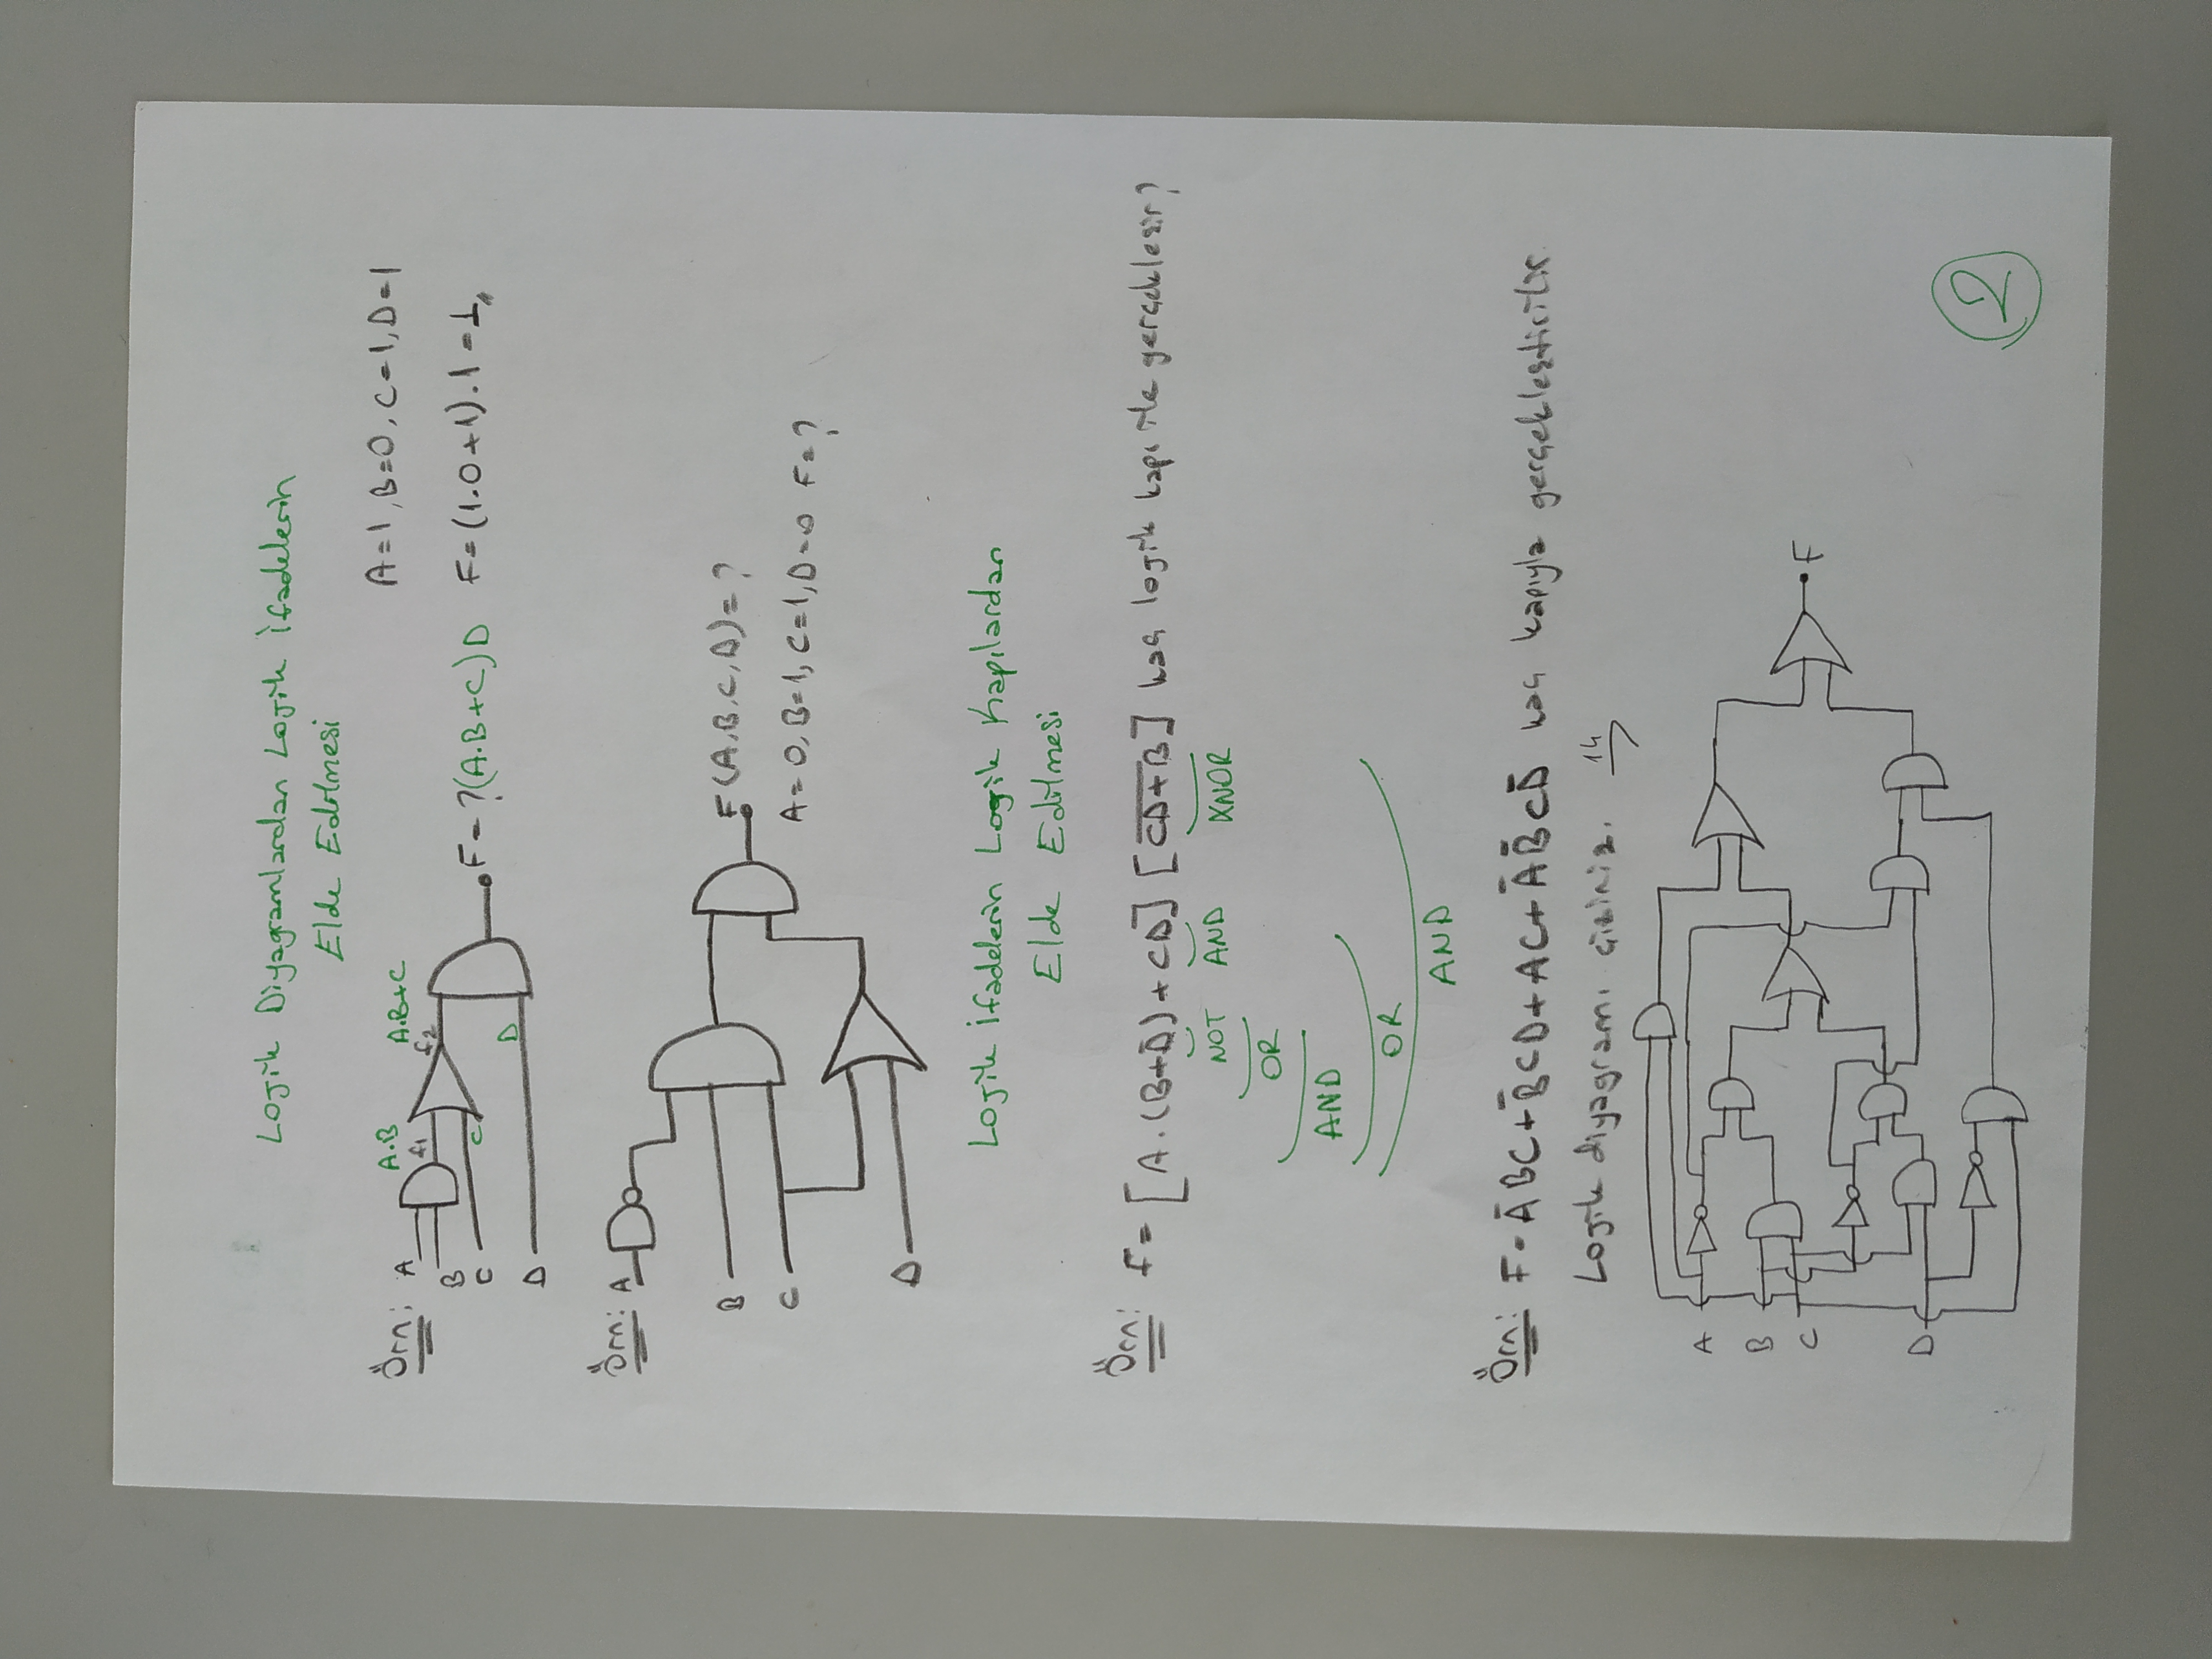 Lojik Diyagramlardan Lojik İfadelerin
Elde Edilmesi
Örn: A B C D A.B f1 C A.B+C f2 D F=?(A.B+C)D
A=1, B=0, C=1, D=1
F=(1.0+1).1=1,,
Örn: A
B
C
D
F(A,B,C,D)=?
A=0, B=1, C=1, D=0 F=?
Lojik İfadelerin Lojik Kapılardan
Elde Edilmesi
Örn: F=[A.(B+D̅)+CD] [C̅D̅+̅B̅] kaç lojik kapı ile gerçekleşir?
NOT AND XNOR
OR
AND
OR
AND
Örn: F=A̅BC+B̅CD+AC+A̅B̅CD̅ kaç kapıyla gerçekleştirilir.
Lojik diyagramı çiziniz. 14
A
B
C
D
F
2